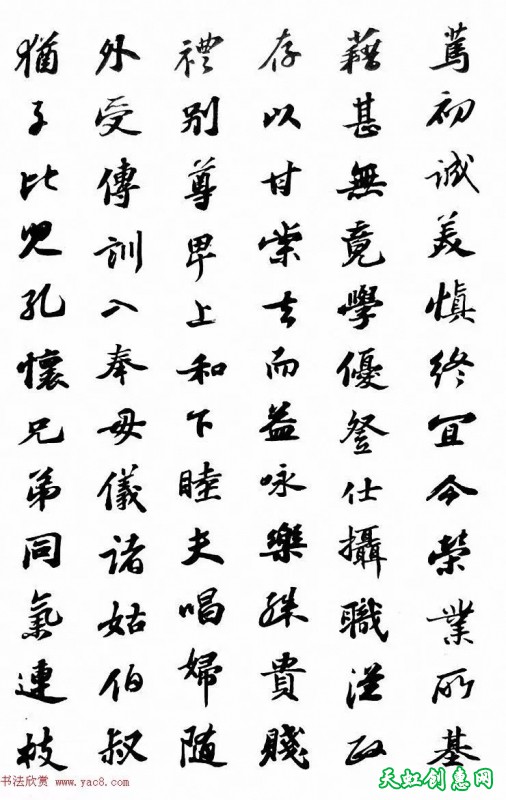 篤初誠美慎終宜令榮業所基
藉甚無竟學優登仕攝職從政
存以甘棠去而益咏樂殊貴賤
禮別尊卑上和下睦夫唱婦隨
外受傳訓入奉母儀諸姑伯叔
猶子比兒孔懷兄弟同氣連枝
书法欣赏 www.yac8.com
天虹创惠网